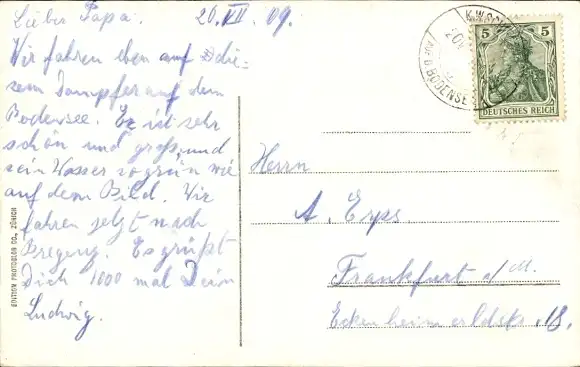 Lieber Papa. 20.VII.09.
Wir fahren eben auf die-
sem Dampfer auf dem
Bodensee. Er ist sehr
schön und groß, und
sein Wasser so grün wie
auf dem Bild. Wir
fahren jetzt nach
Bregenz. Es grüßt
Dich 1000 mal Dein
Ludwig.
Herrn
A. Erps.
Frankfurt a/M.
Eckenheimerldstr. 18.
5 5
DEUTSCHES REICH
BODENSEE
EDITION PHOTOGLOB CO., ZÜRICH